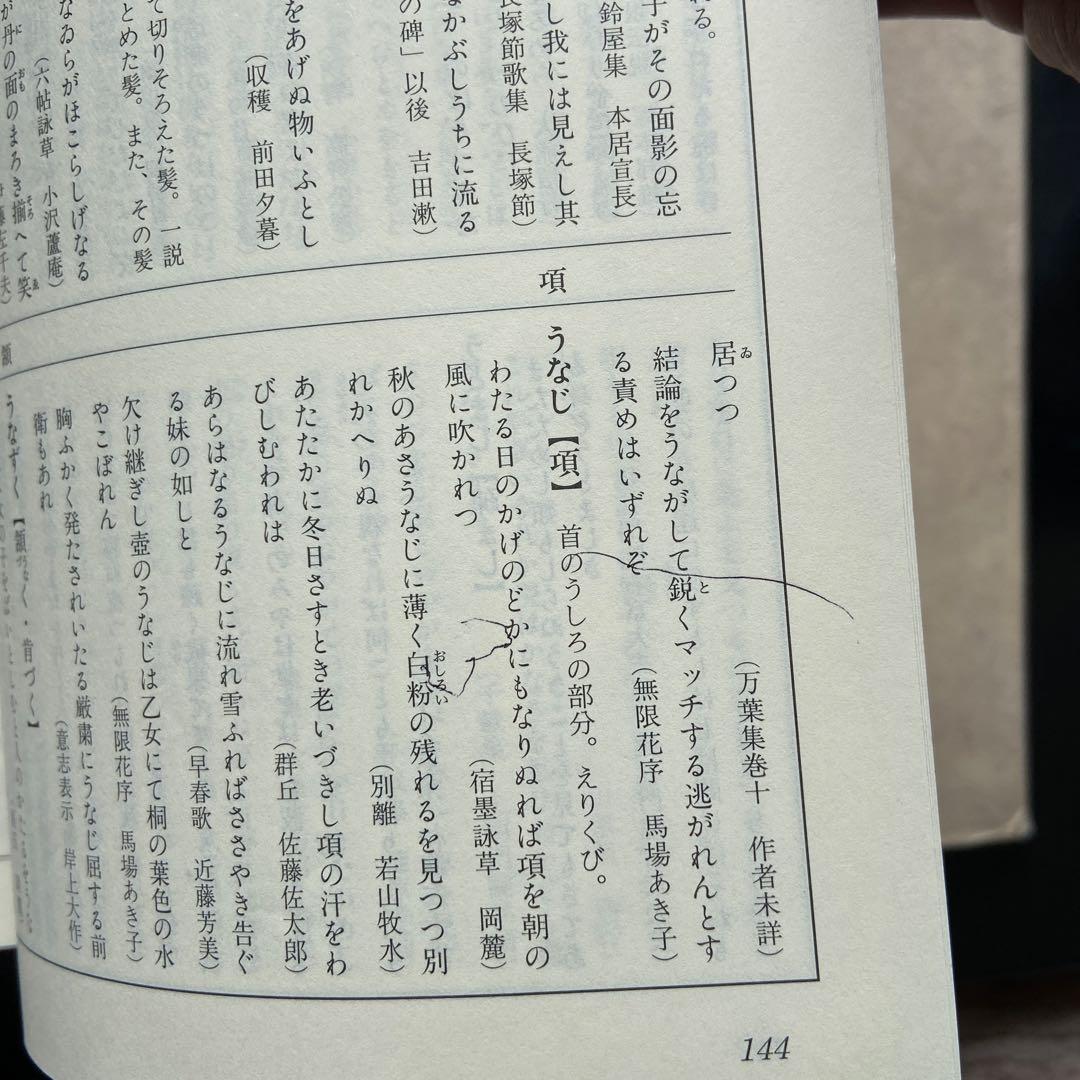 れる。
子がその面影の忘
鈴屋集　本居宣長）
し我には見えし其
長塚節歌集　長塚節）
なかぶしうちに流る
の碑」以後　吉田漱）
をあげぬ物いふとし
（収穫　前田夕暮）
て切りそろえた髪。一説
とめた髪。また、その髪
なゐらがほこらしげなる
（六帖詠草　小沢蘆庵）
が丹の面のまろき揃へて笑
項
居つつ
（万葉集巻十　作者未詳）
結論をうながして鋭くマッチする逃がれんとす
る責めはいずれぞ　（無限花序　馬場あき子）
うなじ【項】　首のうしろの部分。えりくび。
わたる日のかげのどかにもなりぬれば項を朝の
風に吹かれつ　（宿墨詠草　岡麓）
秋のあさうなじに薄く白粉の残れるを見つつ別
れかへりぬ　（別離　若山牧水）
あたたかに冬日さすとき老いづきし項の汗をわ
びしむわれは　（群丘　佐藤佐太郎）
あらはなるうなじに流れ雪ふればささやき告ぐ
る妹の如しと　（早春歌　近藤芳美）
欠け継ぎし壺のうなじは乙女にて桐の葉色の水
やこぼれん　（無限花序　馬場あき子）
胸ふかく発たされいたる厳粛にうなじ屈する前
衛もあれ　（意志表示　岸上大作）
うなずく【頷く・肯づく】
144